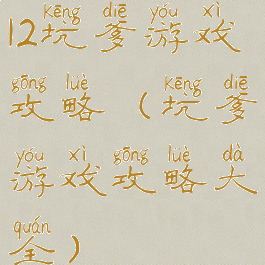 kēng diē yóu xì
12坑爹游戏
gōng lüè kēng diē
攻略（坑爹
yóu xì gōng lüè dà
游戏攻略大
quán
全）